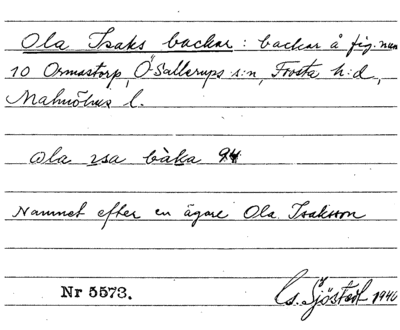 Ola Isaks backar: backar å fig. num
10 Ormastorp, Ö Sallerups s:n, Frosta h:d,
Malmöhus l.
ola isa bàka 94
Namnet efter en ägare Ola Isaksson
Nr 5573.
Sjöstedt 1946